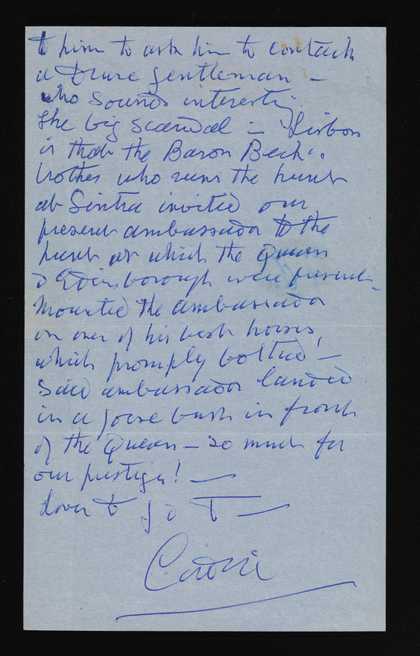 to him to ask him to contact
a gentleman –
who sounds interesting
The big scandal in Lisbon
is that the Baron Beck's
brother who runs the hunt
at Sintra invited our
present ambassador to the
hunt at which the Queen
& Edinborough were present.
Mounted the ambassador
on one of his best horses,
which promply bolted –
Said ambassador landed
in a gorse bush in front
of the Queen – so much for
our prestige! —
Love to —